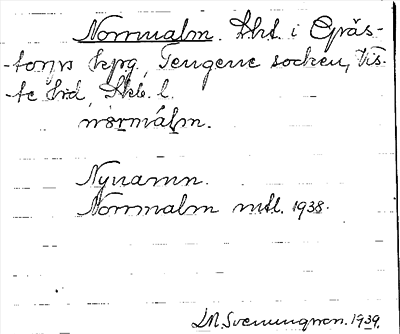 Norrmalm. Lht. i Gräs-
-torps kpg, Tengene socken, Vis-
-te hd, Skb. l.
nòrmálm.
Nynamn.
Norrmalm mtl. 1938.
L.M. Svenungsson. 1939.